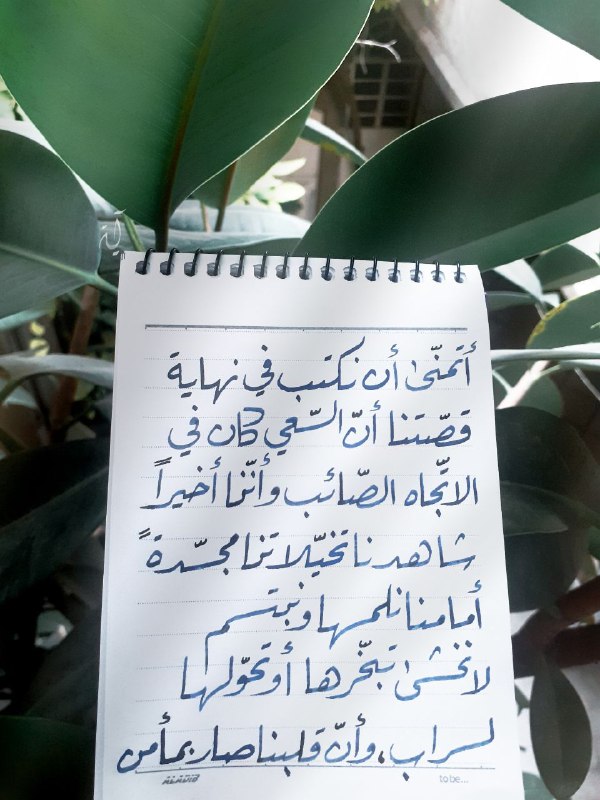 آية
أتمنّىٰ أن نكتب في نهاية
قصّتنا أنّ السّعي كان في
الاتّجاه الصّائب وأنّنا أخيراً
شاهدنا تخيّلاتنا مجسّدةً
أمامنا نلمسها ونبتسم
لا نخشىٰ تبخّرها أو تحوّلها
لسراب، وأنّ قلبنا صار بمأمن
ALADIB to be...